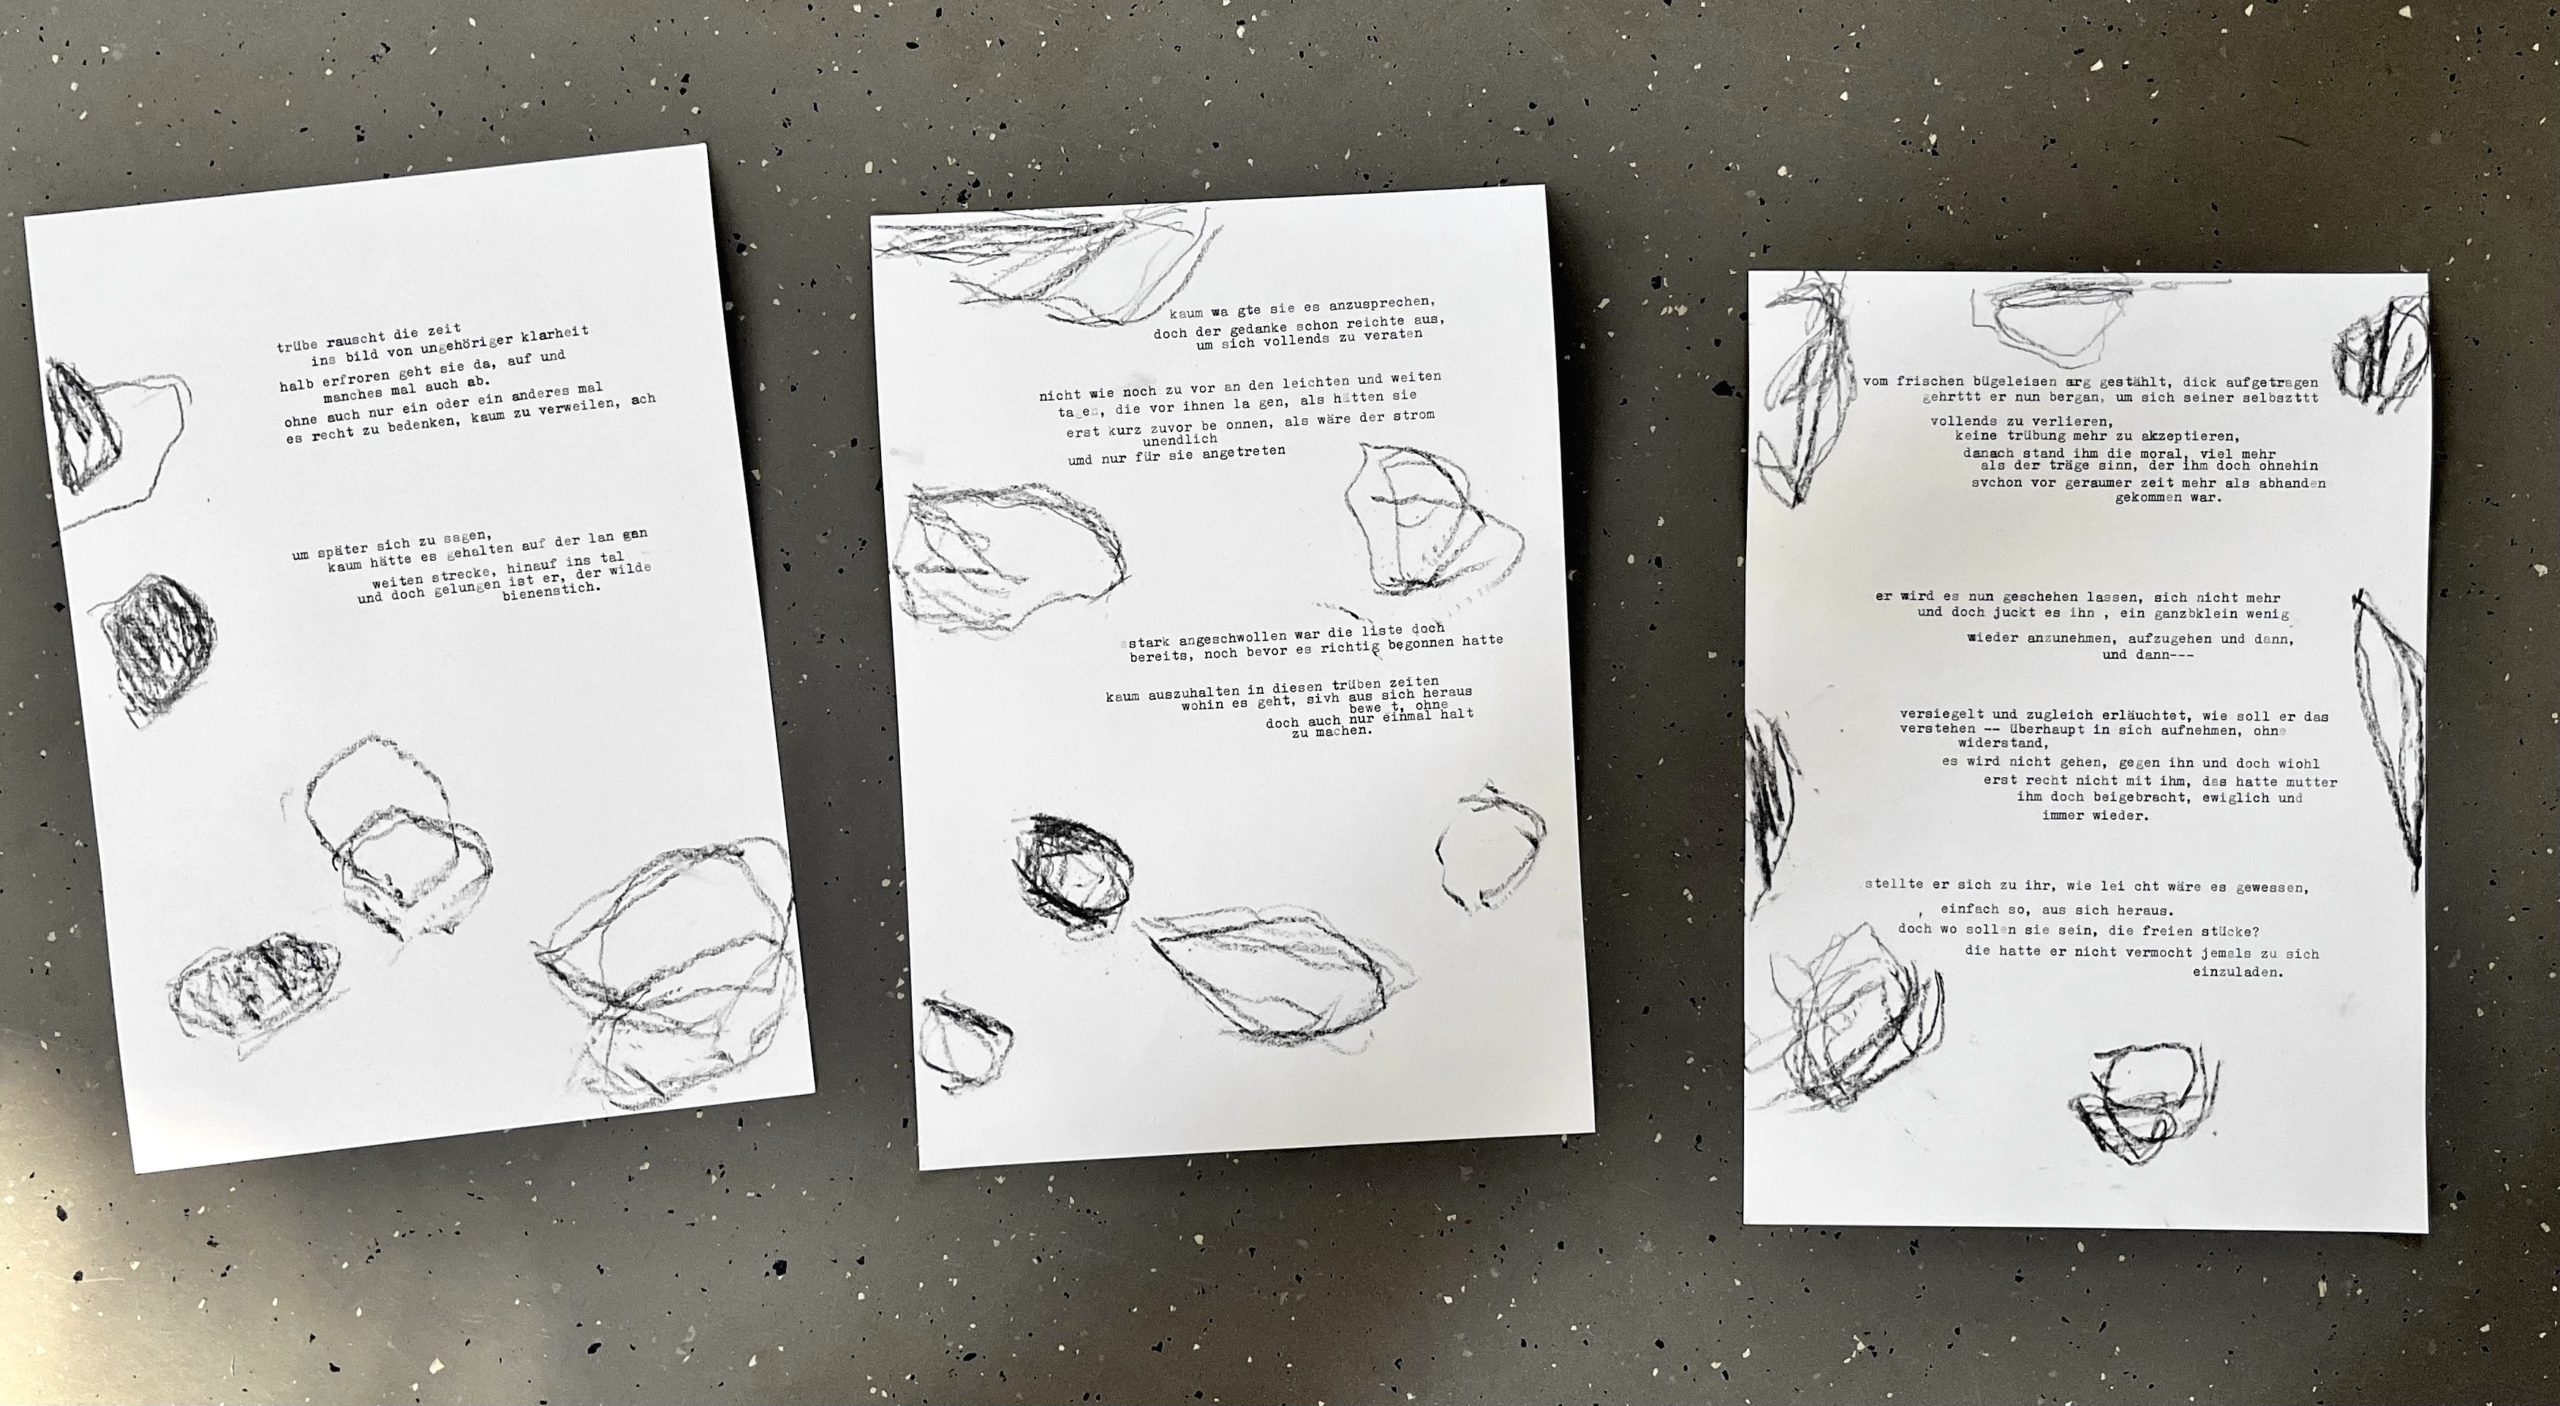 trübe rauscht die zeit
ins bild von ungehöriger klarheit
halb erfroren geht sie da, auf und
manches mal auch ab.
ohne auch nur ein oder ein anderes mal
es recht zu bedenken, kaum zu verweilen, ach
um später sich zu sagen,
kaum hätte es gehalten auf der lan gen
weiten strecke, hinauf ins tal
und doch gelungen ist er, der wilde
bienenstich.
kaum wa gte sie es anzusprechen,
doch der gedanke schon reichte aus,
um sich vollends zu veraten
nicht wie noch zu vor an den leichten und weiten
ta es, die vor ihnen la gen, als hätten sie
erst kurz zuvor be onnen, als wäre der strom
unendlich
umd nur für sie angetreten
stark angeschwollen war die liste doch
bereits, noch bevor es richtig begonnen hatte
kaum auszuhalten in diesen trüben zeiten
wohin es geht, sivh aus sich heraus
bewe t, ohne
doch auch nur einmal halt
zu machen.
vom frischen bügeleisen arg gestählt, dick aufgetragen
gehrttt er nun bergan, um sich seiner selbszttt
vollends zu verlieren,
keine trübung mehr zu akzeptieren,
danach stand ihm die moral, viel mehr
als der träge sinn, der ihm doch ohnehin
svchon vor geraumer zeit mehr als abhanden
gekommen war.
er wird es nun geschehen lassen, sich nicht mehr
und doch juckt es ihn , ein ganzbklein wenig
wieder anzunehmen, aufzugehen und dann,
und dann---
versiegelt und zugleich erläuchtet, wie soll er das
verstehen -- überhaupt in sich aufnehmen, ohne
widerstand,
es wird nicht gehen, gegen ihn und doch wiohl
erst recht nicht mit ihm, das hatte mutter
ihm doch beigebracht, ewiglich und
immer wieder.
stellte er sich zu ihr, wie lei cht wäre es gewessen,
, einfach so, aus sich heraus.
doch wo sollen sie sein, die freien stücke?
die hatte er nicht vermocht jemals zu sich
einzuladen.